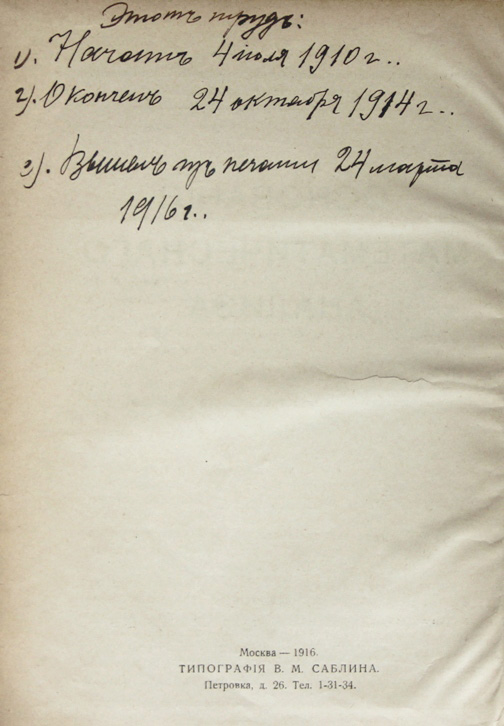 Этотъ трудъ:
1). Начатъ 4 июля 1910 г..
2). Оконченъ 24 октября 1914 г..
3). Вышелъ изъ печати 24 марта
1916 г..
Москва — 1916.
ТИПОГРАФІЯ В. М. САБЛИНА.
Петровка, д. 26. Тел. 1-31-34.